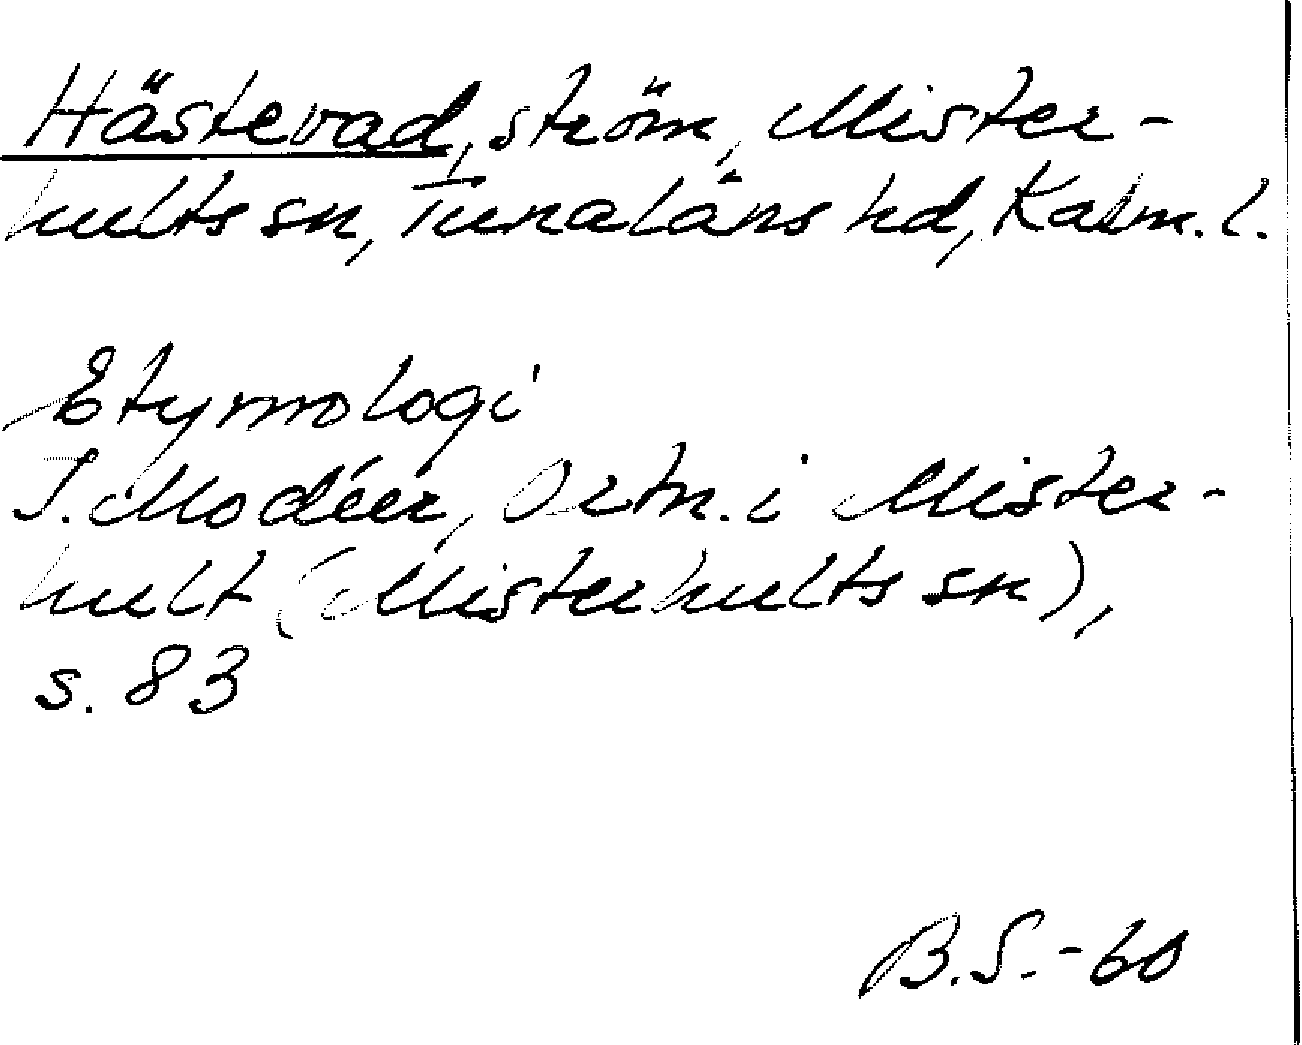 Hästevad, ström, Mister-
hults sn, Tunaläns hd, Kalm. l.
Etymologi
I. Modéer, Ortn. i Mister-
hult (Misterhults sn),
s. 83
B.S.-60